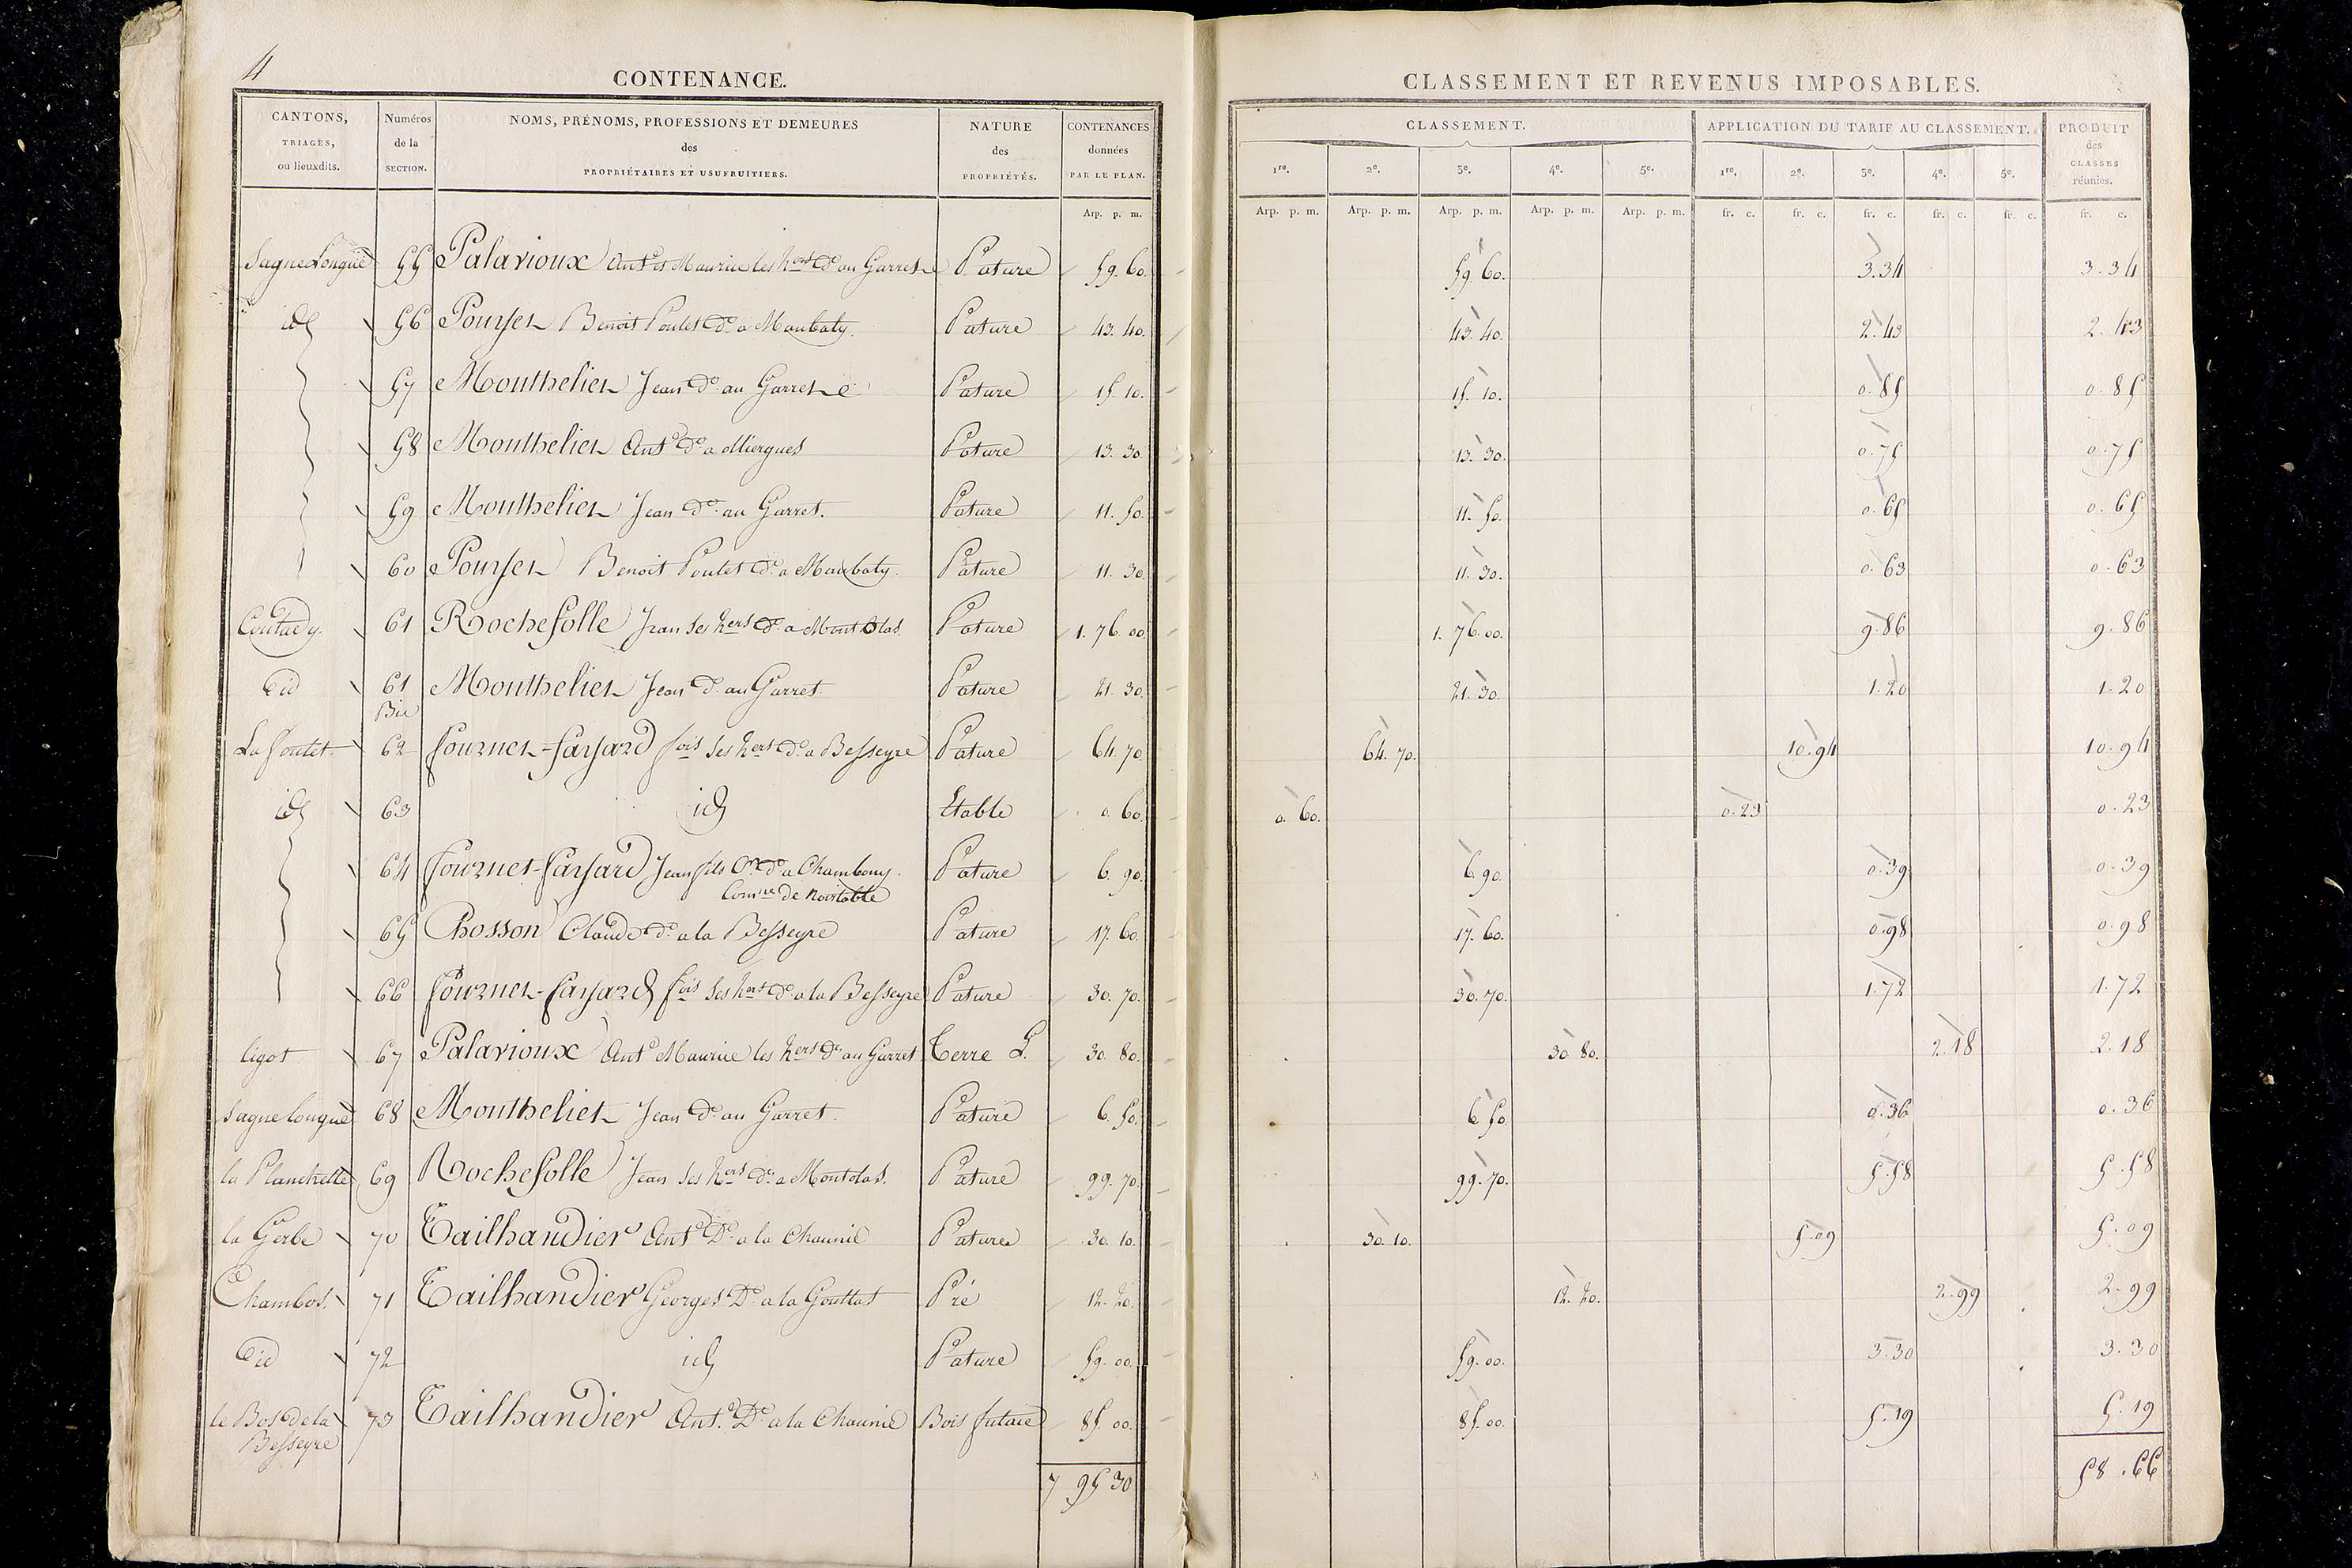 4
CONTENANCE.
CANTONS, TRIAGES, ou lieuxdits. Numéros de la SECTION. NOMS, PRÉNOMS, PROFESSIONS ET DEMEURES des PROPRIÉTAIRES ET USUFRUITIERS. NATURE des PROPRIÉTÉS. CONTENANCES données PAR LE PLAN.
Arp. p. m.
Sagne Longue 55 Palarioux Ant.e et Maurice les hers d.o au Garret Pature 59. 60.
id 56 Pourset Benoit Poulet d.o a Maubaty. Pature 43. 40.
57 Monthelier Jean d.o au Garret Pature 15. 10.
58 Monthelier Ant.e d.o a Miergues Pature 13. 30.
59 Monthelier Jean d.o au Garret. Pature 11. 50.
60 Pourset Benoit Poulet d.o a Maubaty. Pature 11. 30.
61 Rochefolle Jean ses hers d.o a Montolas. Pature 1. 76. 00.
id 61 Monthelier Jean d.o au Garret Pature 21. 30.
Bis
La Foulet 62 Fournet-Fayard fois ses hers d.o a Besseyre Pature 64. 70.
id 63 id Etable 0. 60.
64 Fournet-Fayard Jean fils d.o a Chambony. Pature 6. 90.
Comne de Noiretable
65 Chosson Claude d.o a la Besseyre Pature 17. 60.
66 Fournet-Fayard fois ses hers d.o a la Besseyre Pature 30. 70.
ligot 67 Palarioux Ant.e Maurice les hers d.o au Garret Terre L. 30. 80.
Sagne longue 68 Monthelier Jean d.o au Garret. Pature 6. 50.
la Planchette 69 Rochefolle Jean ses hers d.o a Montolas. Pature 99. 70.
la Gerbe 70 Tailhandier Ant.e D.o a la Chaunie Pature 30. 10.
Chambos. 71 Tailhandier Georges D.o a la Gouttas Pré 12. 20.
id 72 id Pature 59. 00.
le Bos de la 73 Tailhandier Ant.e D.o a la Chaunie Bois futaie 85. 00.
Besseyre
7 95 30
CLASSEMENT ET REVENUS IMPOSABLES.
CLASSEMENT. APPLICATION DU TARIF AU CLASSEMENT. PRODUIT des CLASSES réunies.
1re. 2e. 3e. 4e. 5e. 1re. 2e. 3e. 4e. 5e.
Arp. p. m. Arp. p. m. Arp. p. m. Arp. p. m. Arp. p. m. fr. c. fr. c. fr. c. fr. c. fr. c. fr. c.
59. 60. 3.34 3.34
43. 40. 2.43 2.43
15. 10. 0.85 0.85
13. 30. 0.75 0.75
11. 50. 0.65 0.65
11. 30. 0.63 0.63
1. 76. 00. 9.86 9.86
21. 30. 1.20 1.20
64. 70. 10.94 10.94
0. 60. 0.23 0.23
6. 90. 0.39 0.39
17. 60. 0.98 0.98
30. 70. 1.72 1.72
30. 80. 2.18 2.18
6. 50. 0.36 0.36
99. 70. 5.58 5.58
30. 10. 5.09 5.09
12. 20. 2.99 2.99
59. 00. 3.30 3.30
85. 00. 5.19 5.19
58.66